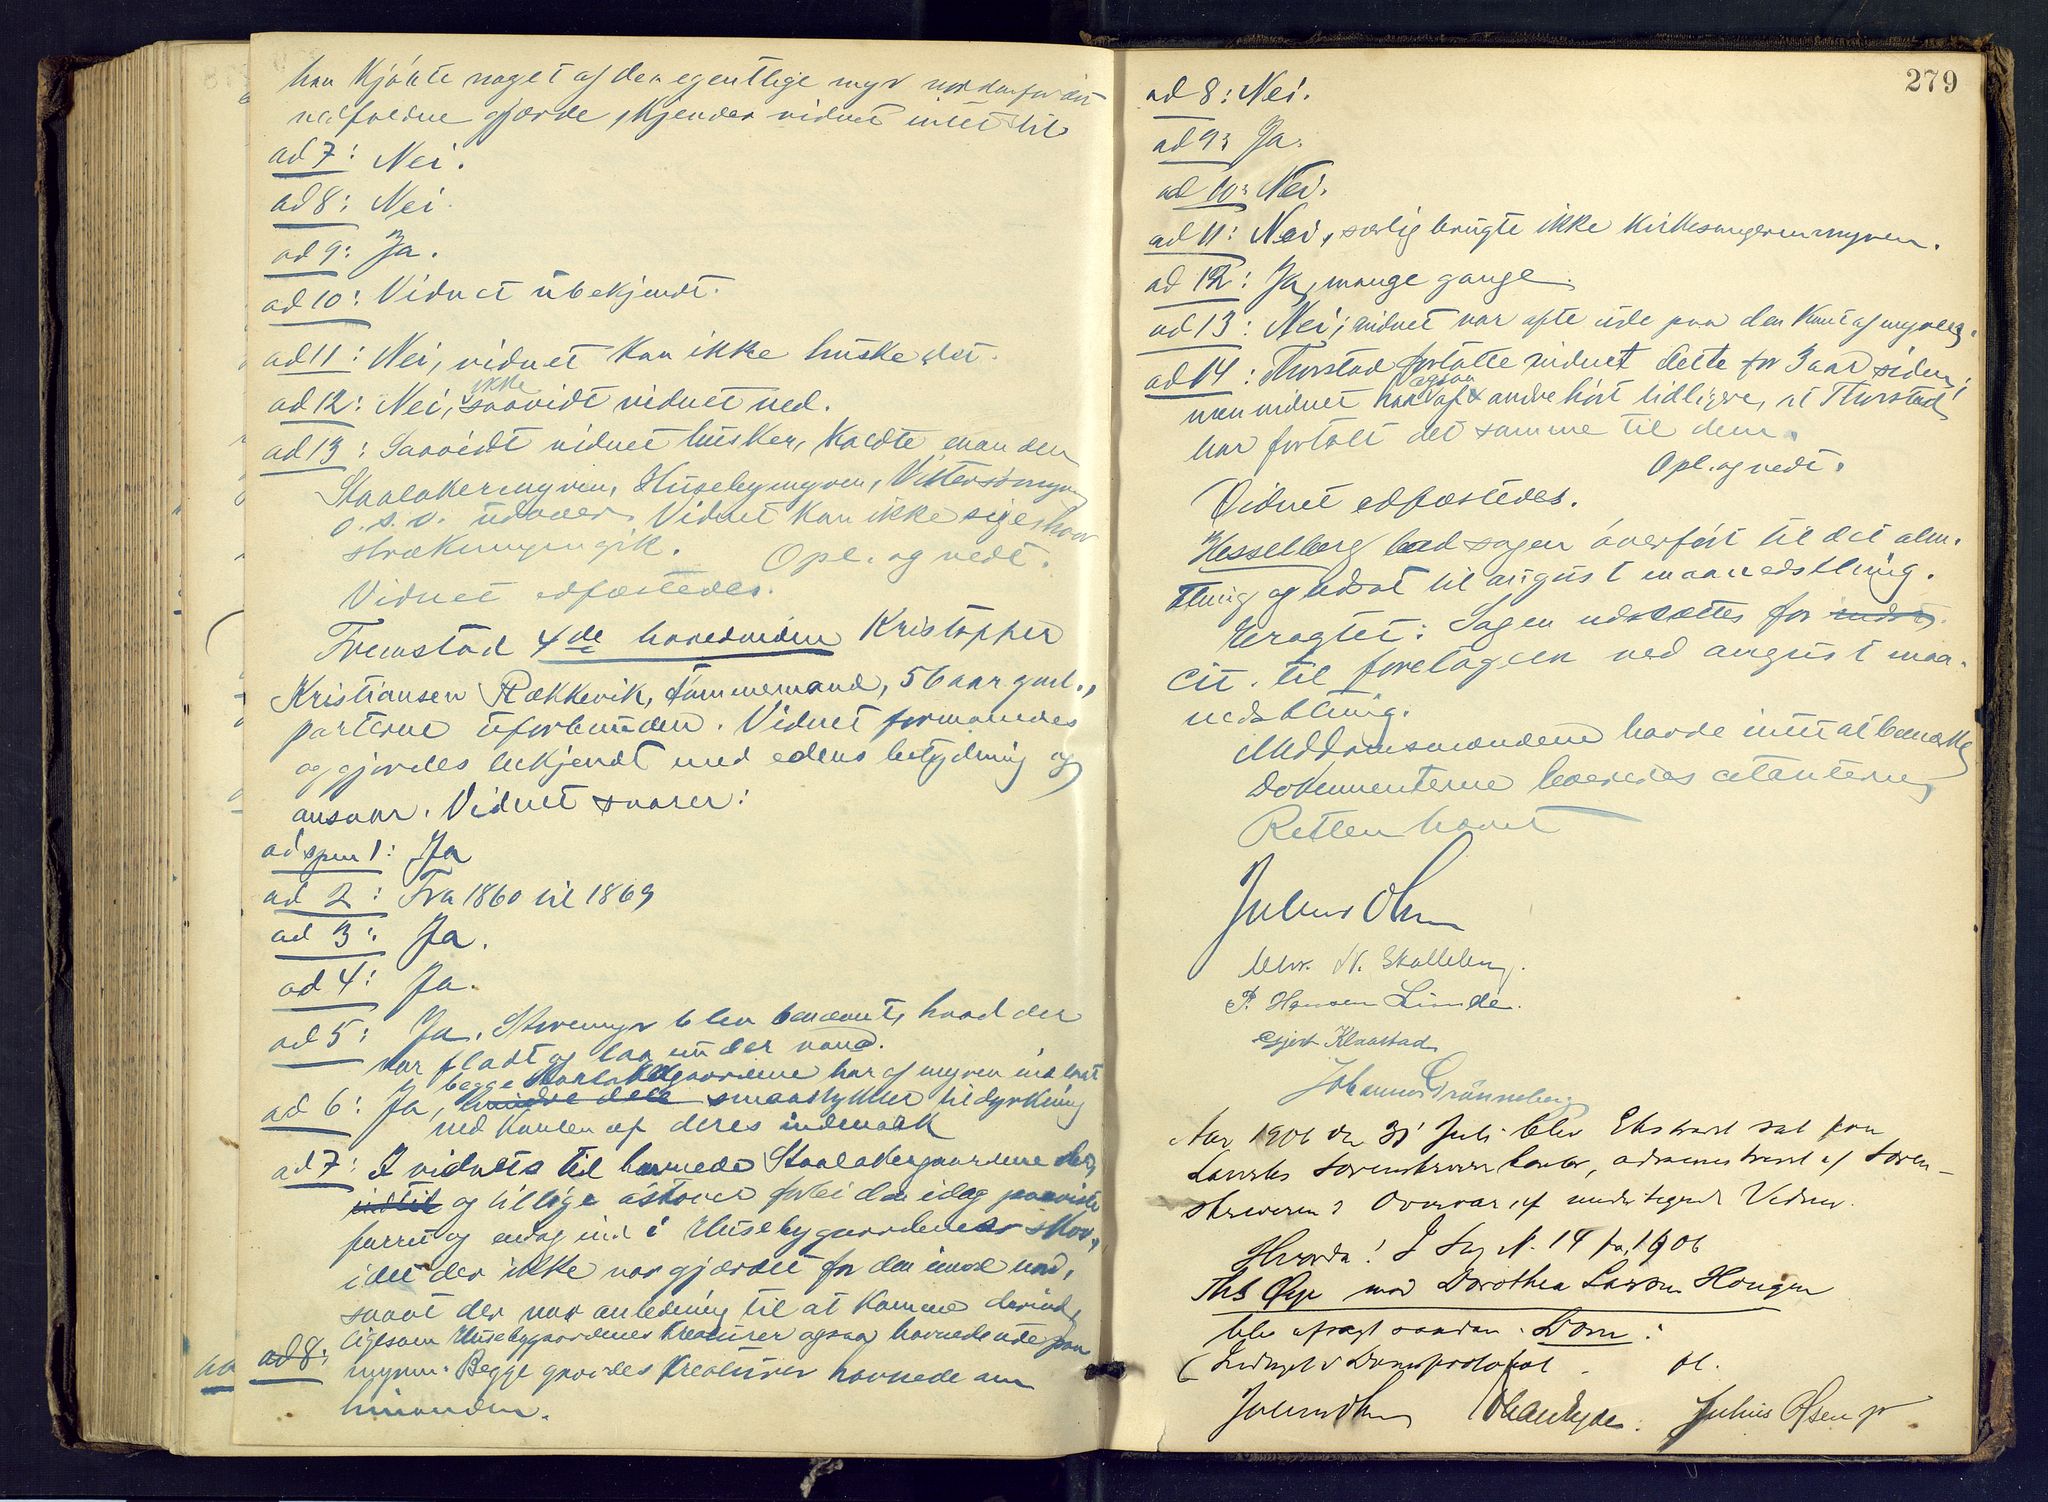 han kjøbte noget af den egentlige myr nordenfor det
nedfaldne gjærde, kjender vidnet intet til
ad 7: Nei.
ad 8: Nei.
ad 9: Ja.
ad 10: Vidnet ubekjendt.
ad 11: Nei, vidnet kan ikke huske det.
ad 12: Nei, ikke saavidt vidnet ved.
ad 13: Saavidt vidnet husker, kaldte man den
Staalakermyren, Husebymyren, Vittersømyren
o.s.v. udover. Vidnet kan ikke sige hvor
strækningen gik. Opl. og vedt.
Vidnet edfæstedes.
Fremstod 4de hovedvidne Kristopher
Kristiansen Rækkevik, tømmermand, 56 aar gml.,
parterne uforbunden. Vidnet formanedes
og gjordes bekjendt med edens betydning og
ansvar. Vidnet svarer:
ad spm 1: Ja
ad 2: Fra 1860 til 1869
ad 3: Ja.
ad 4: Ja.
ad 5: Ja, Storemyr blev benævnt, hvad der
var fladt og laa under vand.
begge Staalakergaardene har af myren indtat
ad 6: Ja, smaastykker til dyrkning
ved kanten af deres indmark
ad 7: I vidnets tid havnede Staalakergaardene der,
indtil og tillige østover forbi den idag paaviste
furru og endog ind i Husebygaardenes skov,
idet der ikke var gjærdet for den imod nord,
saavt der var anledning til at komme derind,
ligesom Husebygaardenes kreaturer ogsaa havnede ude paa
ad 8: myren. Begge gaardes kreaturer havnede om
hinanden.
279
ad 8: Nei.
ad 9: Ja.
ad 10: Nei.
ad 11: Nei, særlig brugte ikke Kirkesangeren myren.
ad 12: Ja, mange gange.
ad 13: Nei; vidnet var ofte ude paa den kant af myren.
ad 14: Thorstad fortalte vidnet dette for 3 aar siden;
men vidnet har ogsaa af andre hørt tidligere, at Thorstad
har fortalt det samme til dem.
Opl. og vedt.
Vidnet edfæstedes.
Hesselberg bad sagen overført til det alm.
thing og udsat til august maanedsthing.
Eragtet: Sagen udsættes for
cit. til foretagen ved august maa-
nedsthing.
Meddomsmændene havde intet at bemærke
Dokumenterne leveredes citanterne
Retten hævet
Julius Olsen
Chr. N. Skalleberg.
P. Hansen Lunde.
Gjert Klaastad
Johannes Grønneberg
Aar 1906 den 31 Juli blev Ekstraret sat paa
Larviks Sorenskriverkontor, administreret af Soren-
skriveren i Overvær af undertegnede Vidner.
Hvorda! I Sag N. 14 for 1906
Ths Øye mod Dorothea Larsen Haugen
blev afsagt saadan Dom:
(Indtaget i Domsprotokol.
Julius Olsen Julius Olsen jr